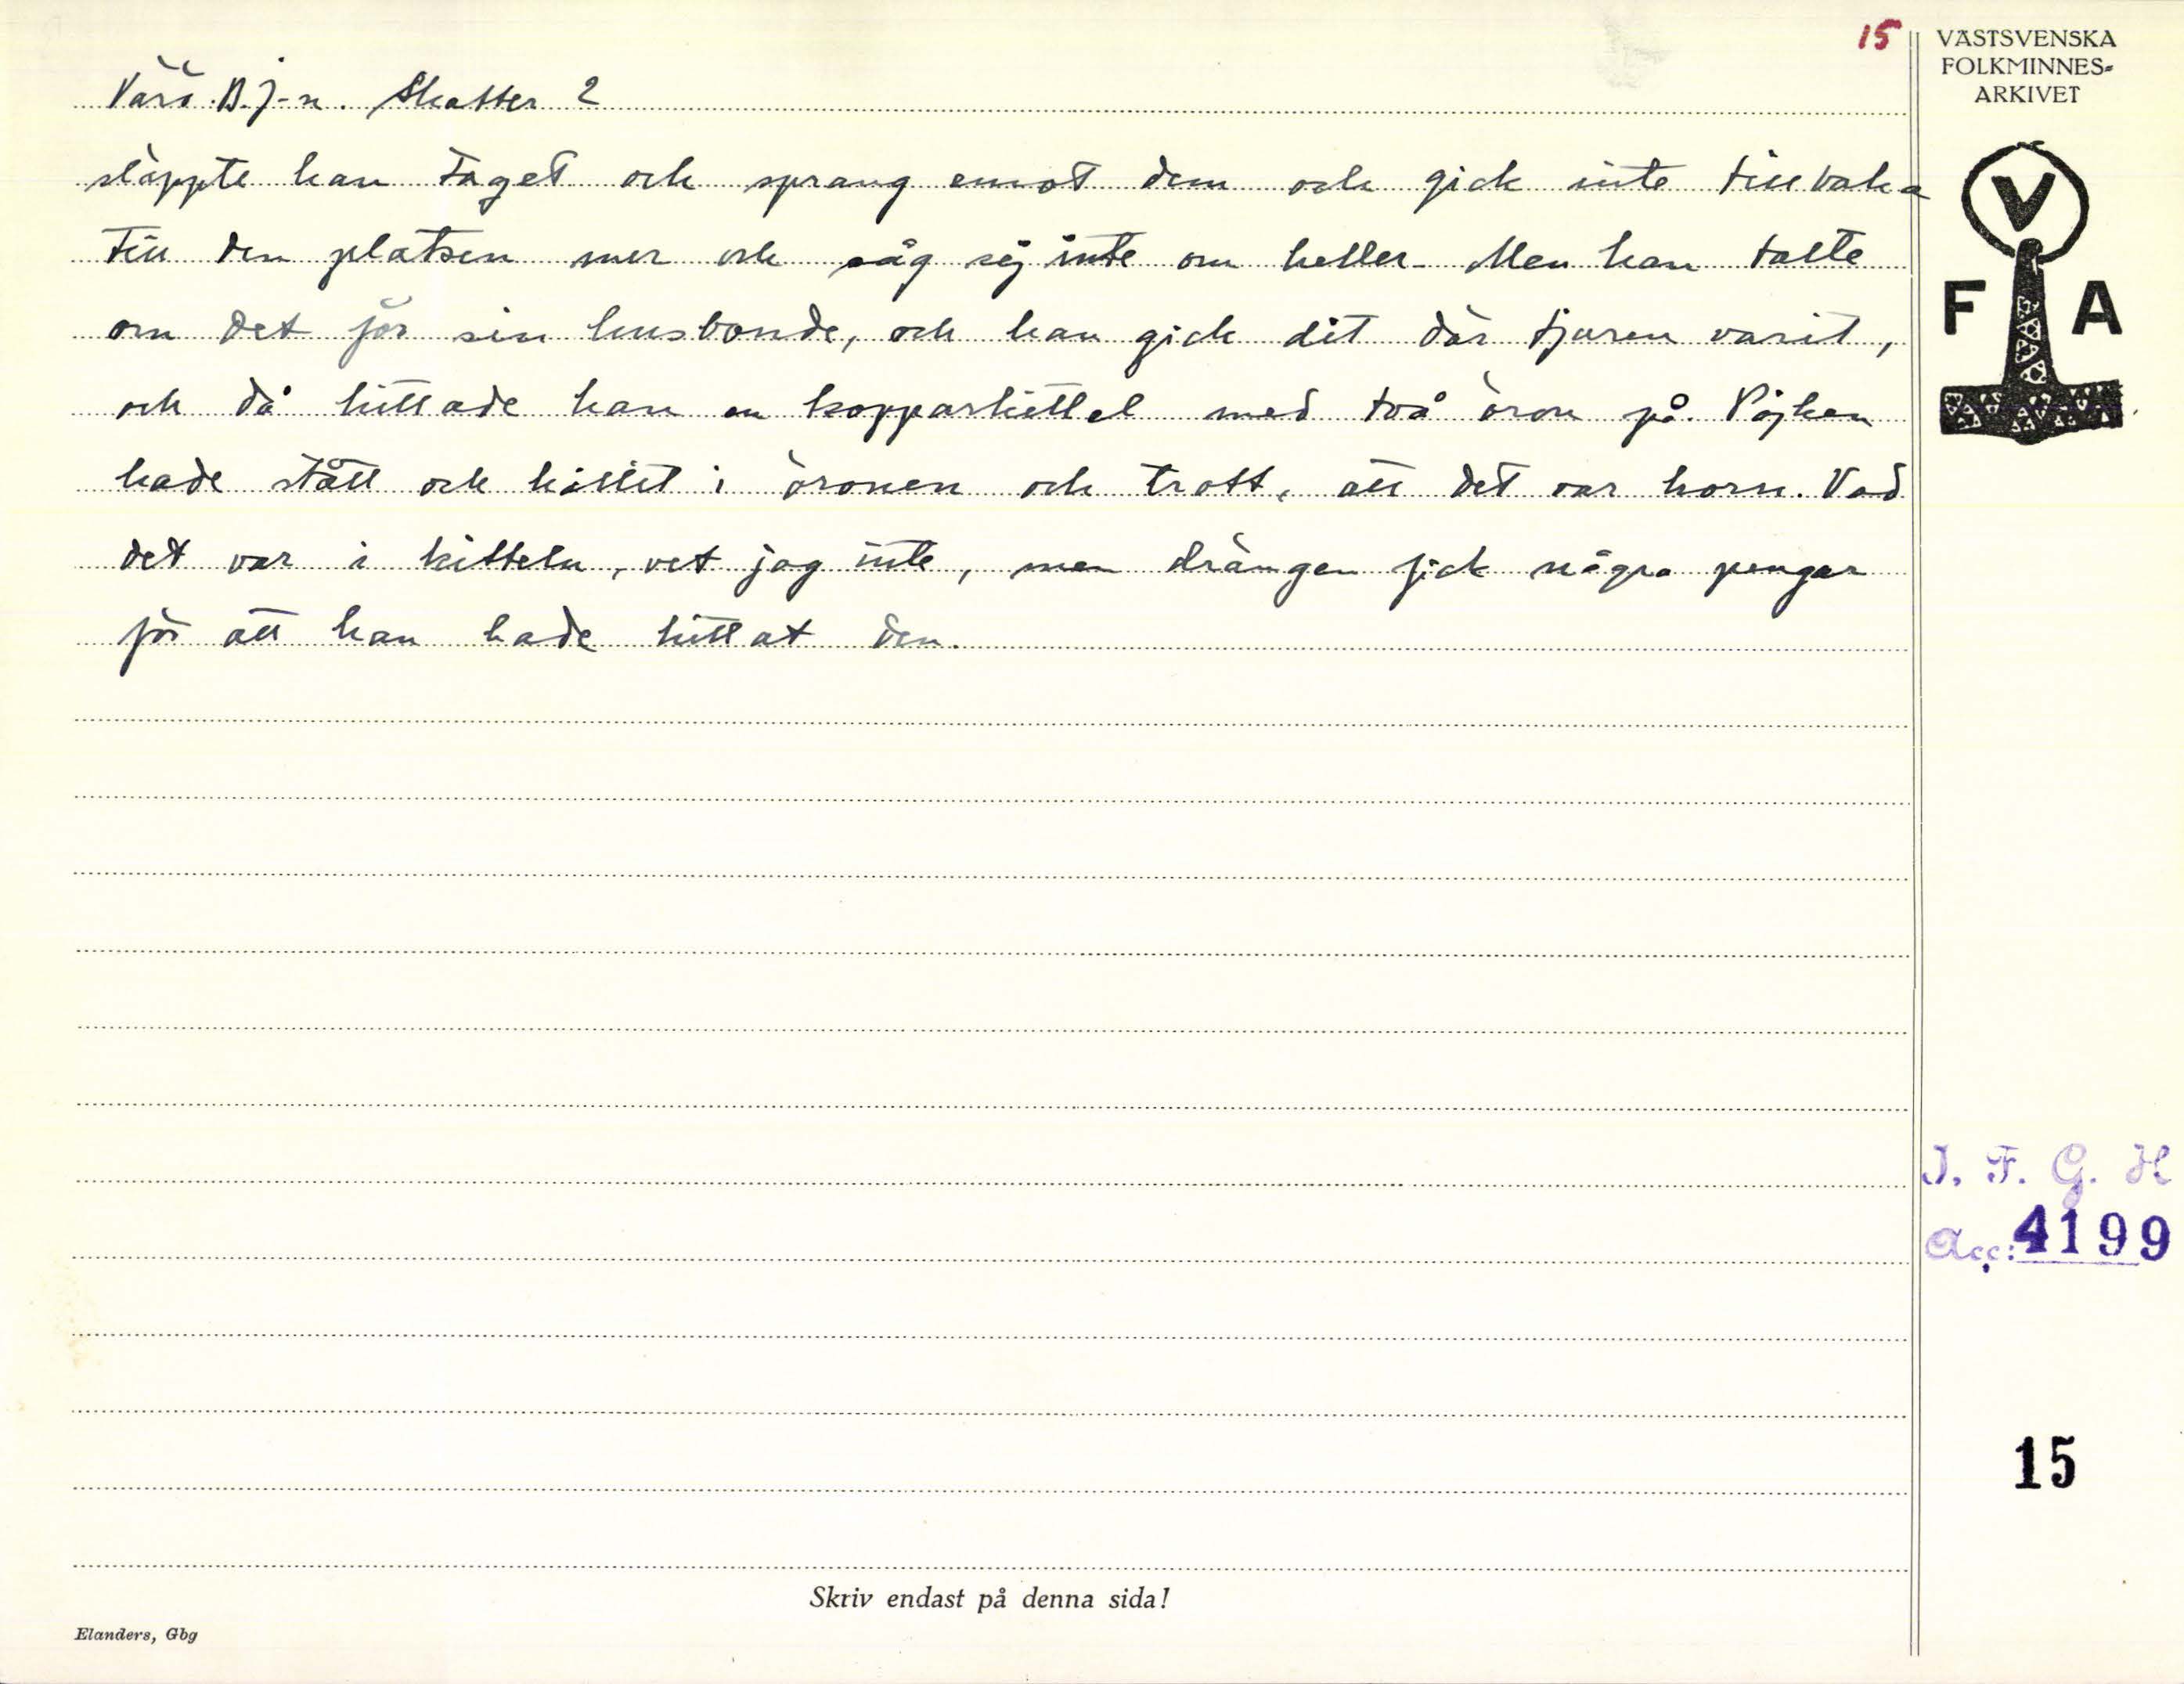 15
VÄSTSVENSKA
FOLKMINNES-
ARKIVET
Värö. B. J-n. Skatter 2
släppte han taget och sprang emot dem och gick inte tillbaka
till den platsen mer och såg sej inte om heller. Men han talte
om det för sin husbonde, och han gick dit där tjuren varit,
och då hittade han en kopparkittel med två öron på. Påjken
hade stått och hållit i öronen och trott, att det var horn. Vad
det var i kitteln, vet jag inte, men drängen fick några pengar
för att han hade hittat den.
V
F A
I. F. G. H
Acc: 4199
15
Skriv endast på denna sida!
Elanders, Gbg